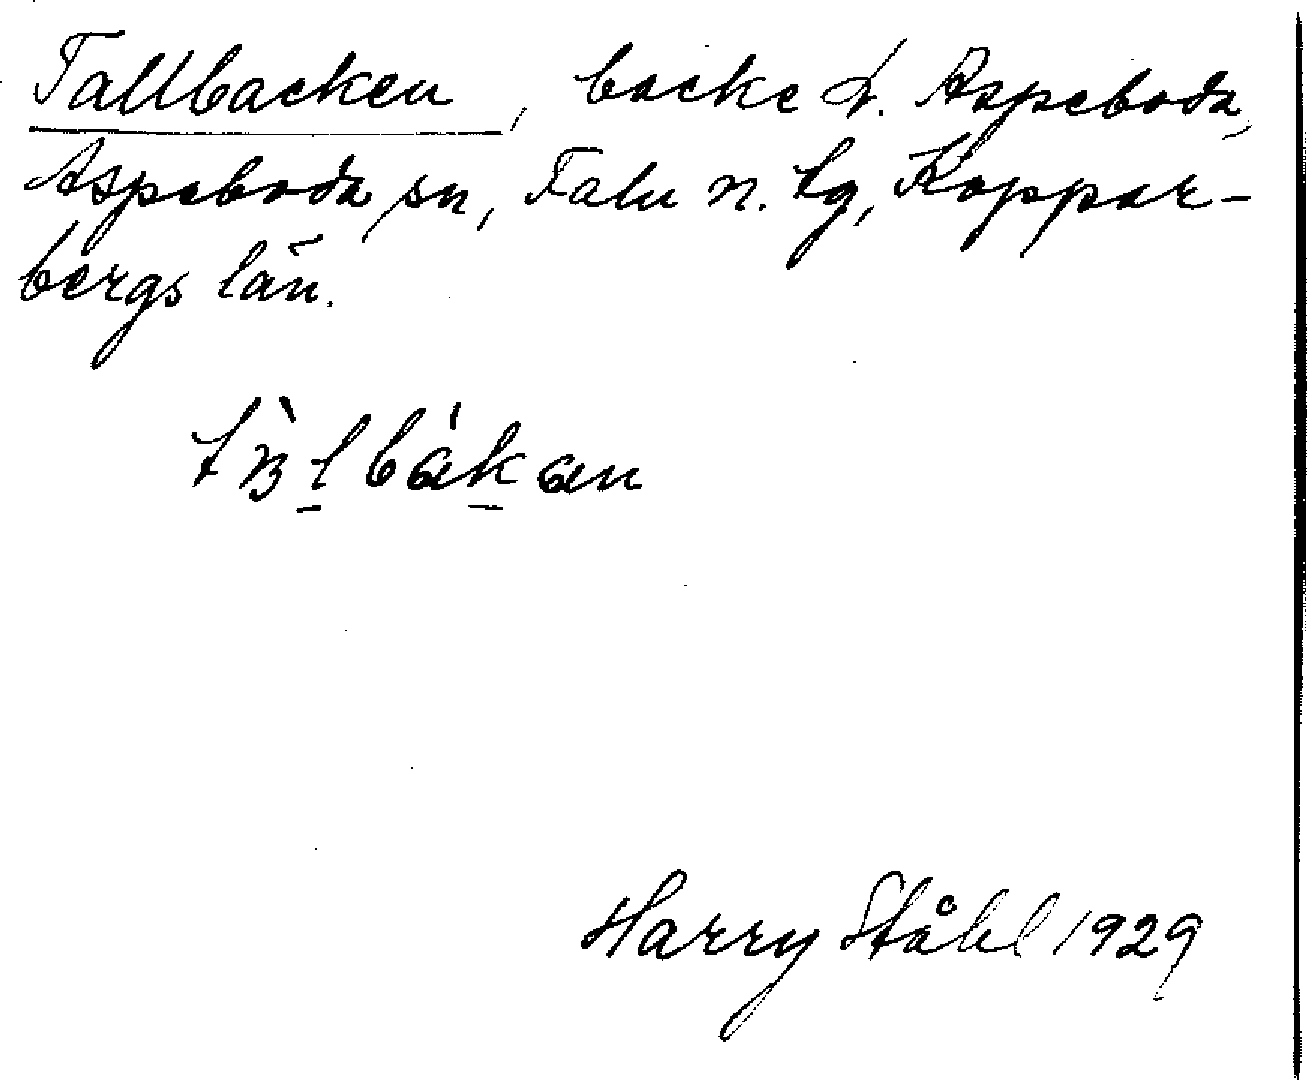 Tallbacken, backe i. Aspeboda,
Aspeboda sn, Falu n. tg, Koppar-
bergs län.
Harry Ståhl 1929